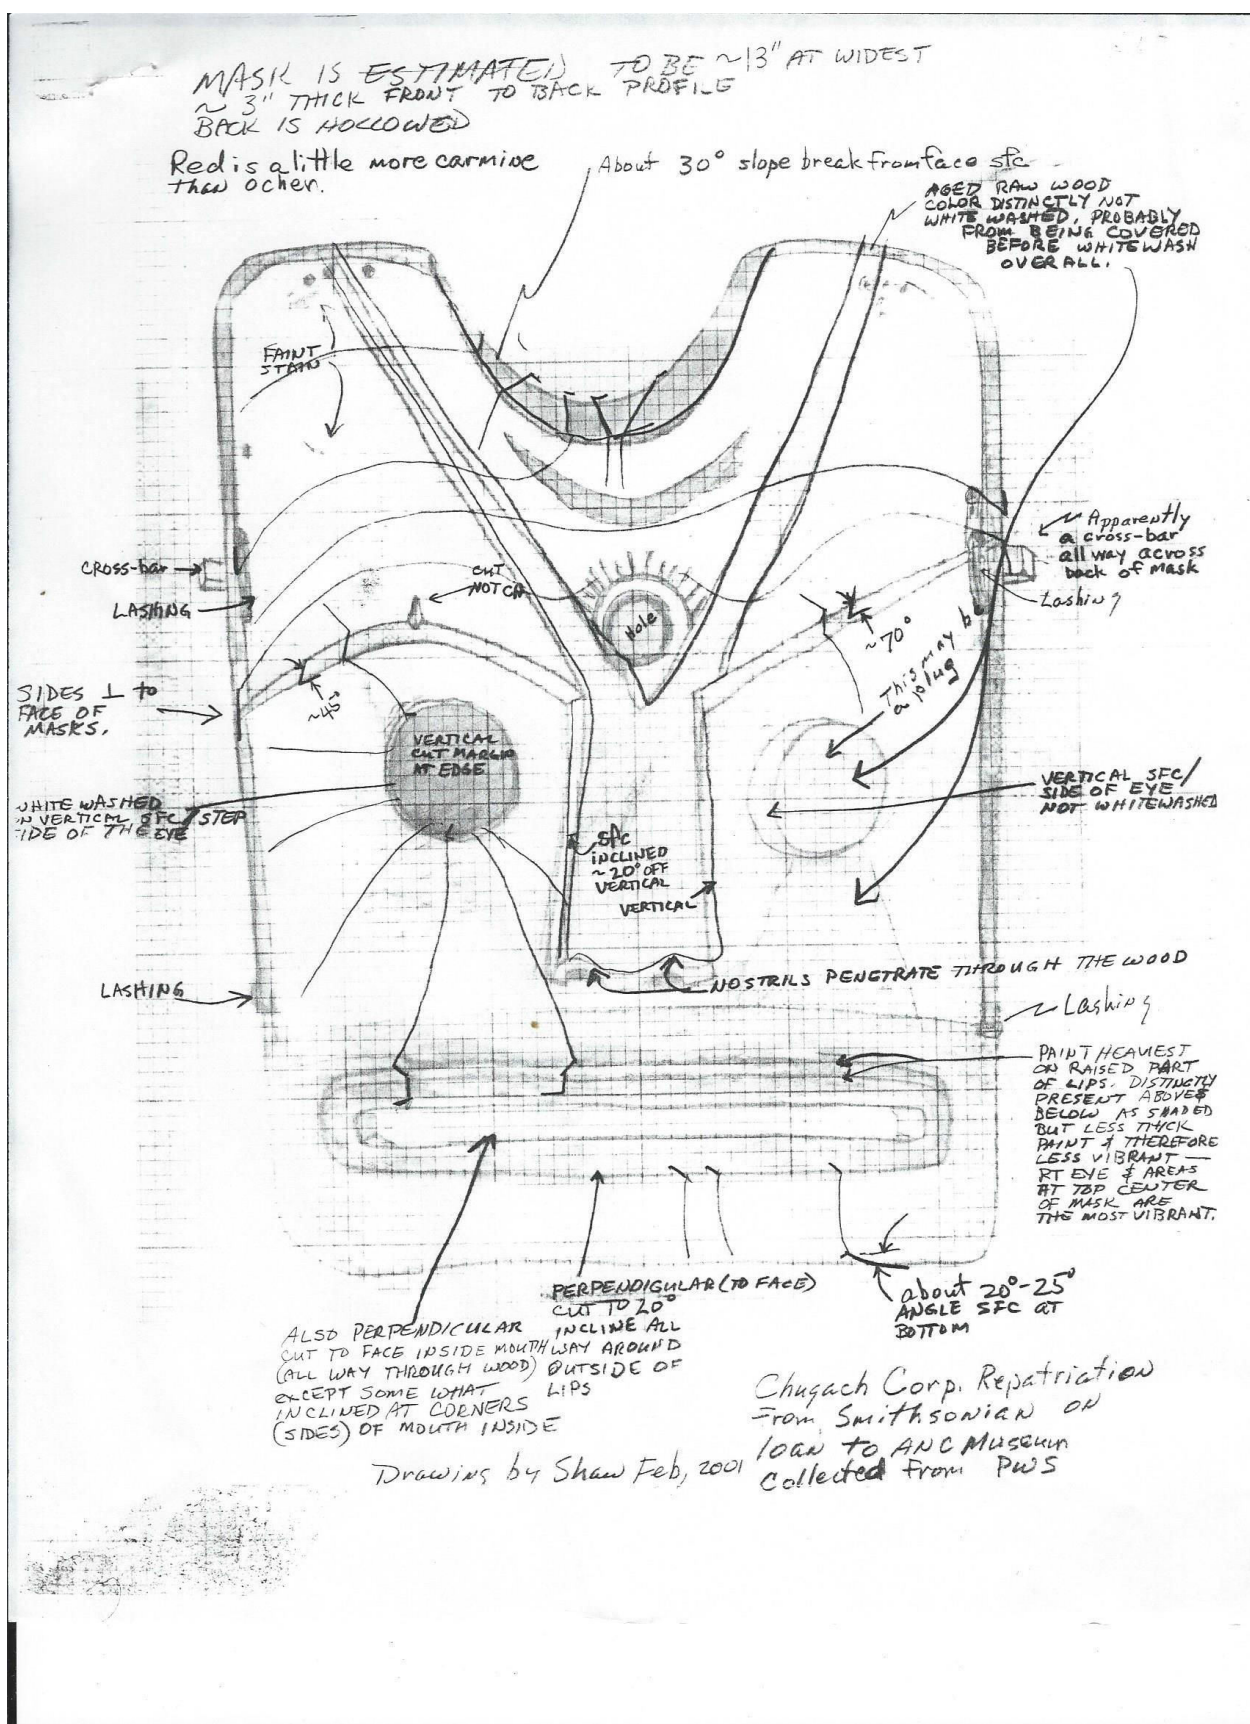 MASK IS ESTIMATED TO BE ~13" AT WIDEST
~ 3" THICK FRONT TO BACK PROFILE
BACK IS HOLLOWED
Red is a little more carmine
than ocher.
About 30° slope break from face sfc
AGED RAW WOOD
COLOR DISTINCTLY NOT
WHITE WASHED, PROBABLY
FROM BEING COVERED
BEFORE WHITEWASH
OVERALL.
FAINT
STAIN
CROSS-bar
LASHING
CUT
NOTCH
Hole
Apparently
a cross-bar
all way across
back of mask
Lashing
~70°
This may b
a plug
SIDES ⊥ to
FACE OF
MASKS.
~45°
VERTICAL
CUT MARGIN
AT EDGE
WHITE WASHED
ON VERTICAL SFC/STEP
SIDE OF THE EYE
VERTICAL SFC/
SIDE OF EYE
NOT WHITEWASHED
SFC
INCLINED
~20° OFF
VERTICAL
VERTICAL
NOSTRILS PENETRATE THROUGH THE WOOD
LASHING
Lashing
PAINT HEAVIEST
ON RAISED PART
OF LIPS. DISTINCTLY
PRESENT ABOVE &
BELOW AS SHADED
BUT LESS THICK
PAINT & THEREFORE
LESS VIBRANT —
RT EYE & AREAS
AT TOP CENTER
OF MASK ARE
THE MOST VIBRANT.
ALSO PERPENDICULAR
CUT TO FACE INSIDE MOUTH
(ALL WAY THROUGH WOOD)
EXCEPT SOME WHAT
INCLINED AT CORNERS
(SIDES) OF MOUTH INSIDE
PERPENDIGULAR (TO FACE)
CUT TO 20°
INCLINE ALL
WAY AROUND
OUTSIDE OF
LIPS
about 20°-25°
ANGLE SFC AT
BOTTOM
Chugach Corp. Repatriation
From Smithsonian on
loan to ANC Museum
Collected from PWS
Drawing by Shaw Feb, 2001